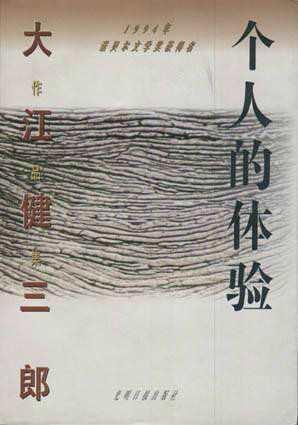 1994年
诺贝尔文学奖获得者
个人的体验
大江健三郎
作品集
光明日报出版社